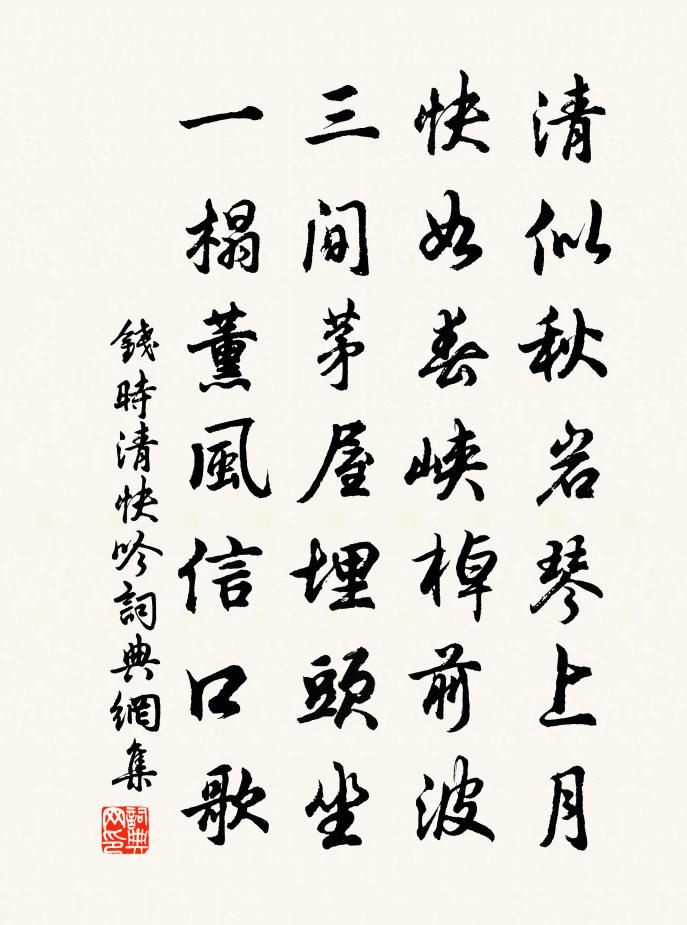 清似秋岩琴上月
快如春峡棹前波
三間茅屋埋頭坐
一榻薰風信口歌
錢時清快吟詞典網集
詞典网印